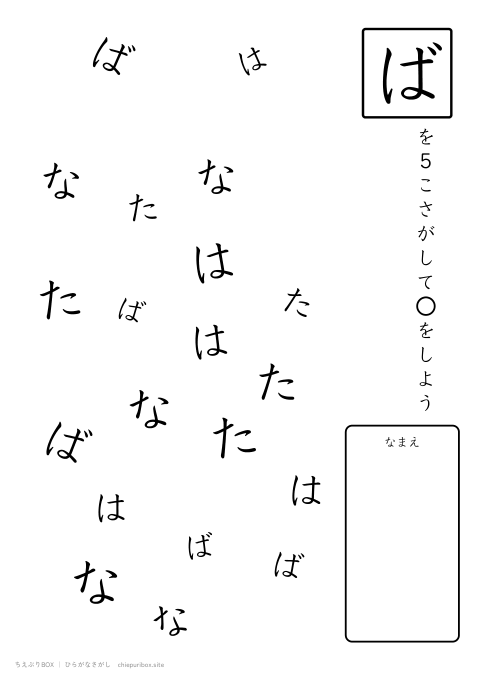 ば
を5こさがして○をしよう
なまえ
ば
は
な
な
た
は
た
ば
た
は
た
な
た
ば
は
は
ば
ば
な
な
ちえぷりBOX | ひらがなさがし chiepuribox.site